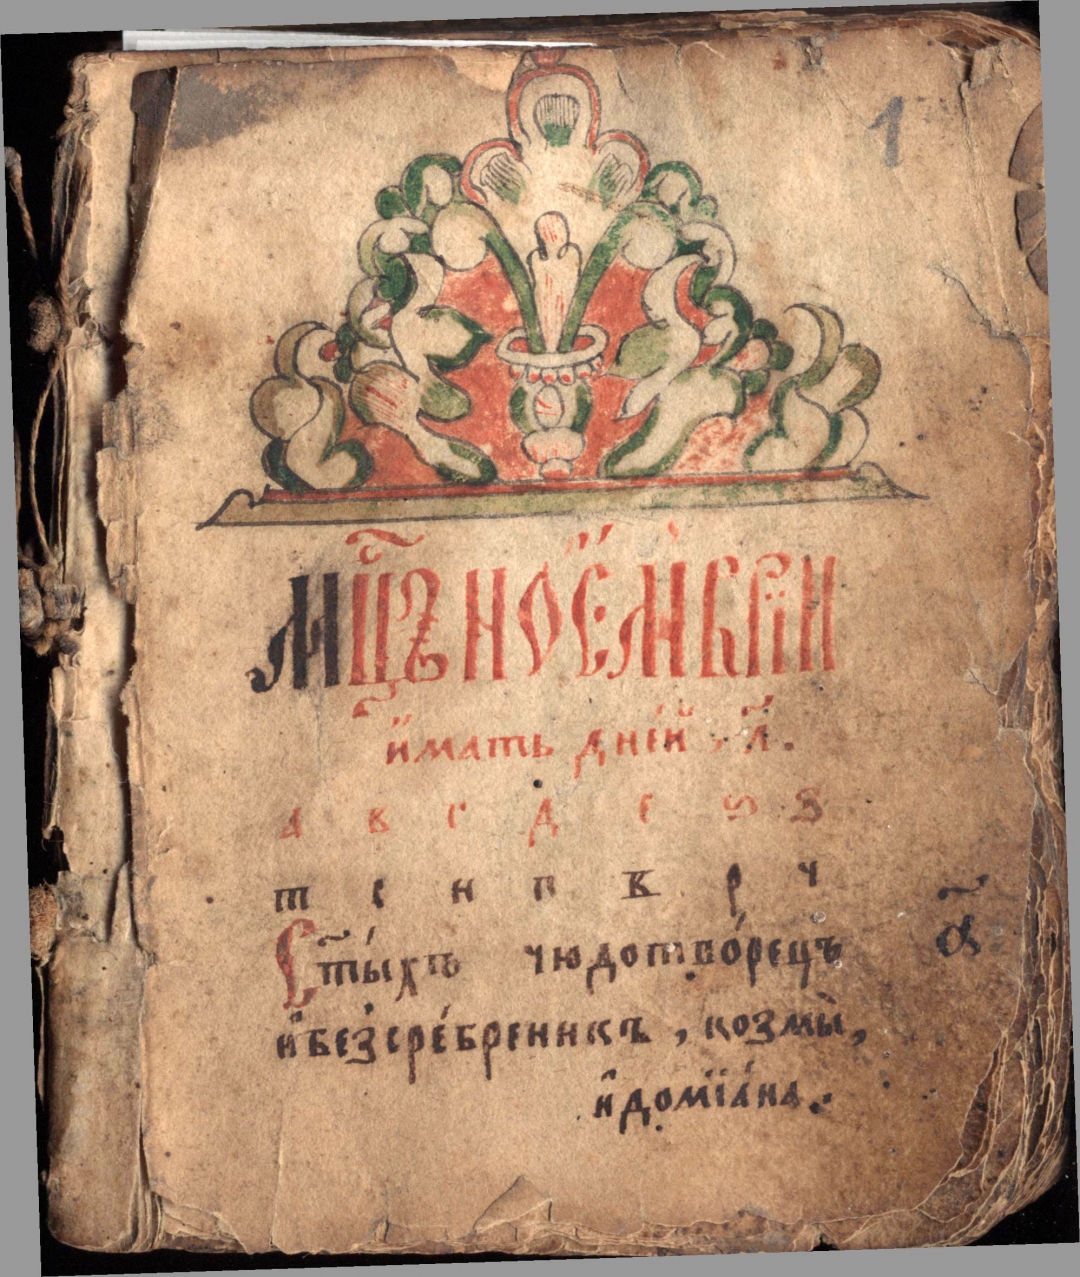 1
Мц҃ъ ноемврїй
и҆мать дні́й , л҃ .
а в г д е ѕ з
т с н п к р ч
С҃ты́хъ чюдотво́рецъ а҃
и҆безсре́бреникъ , козмы̀,
и҆домїа́на .